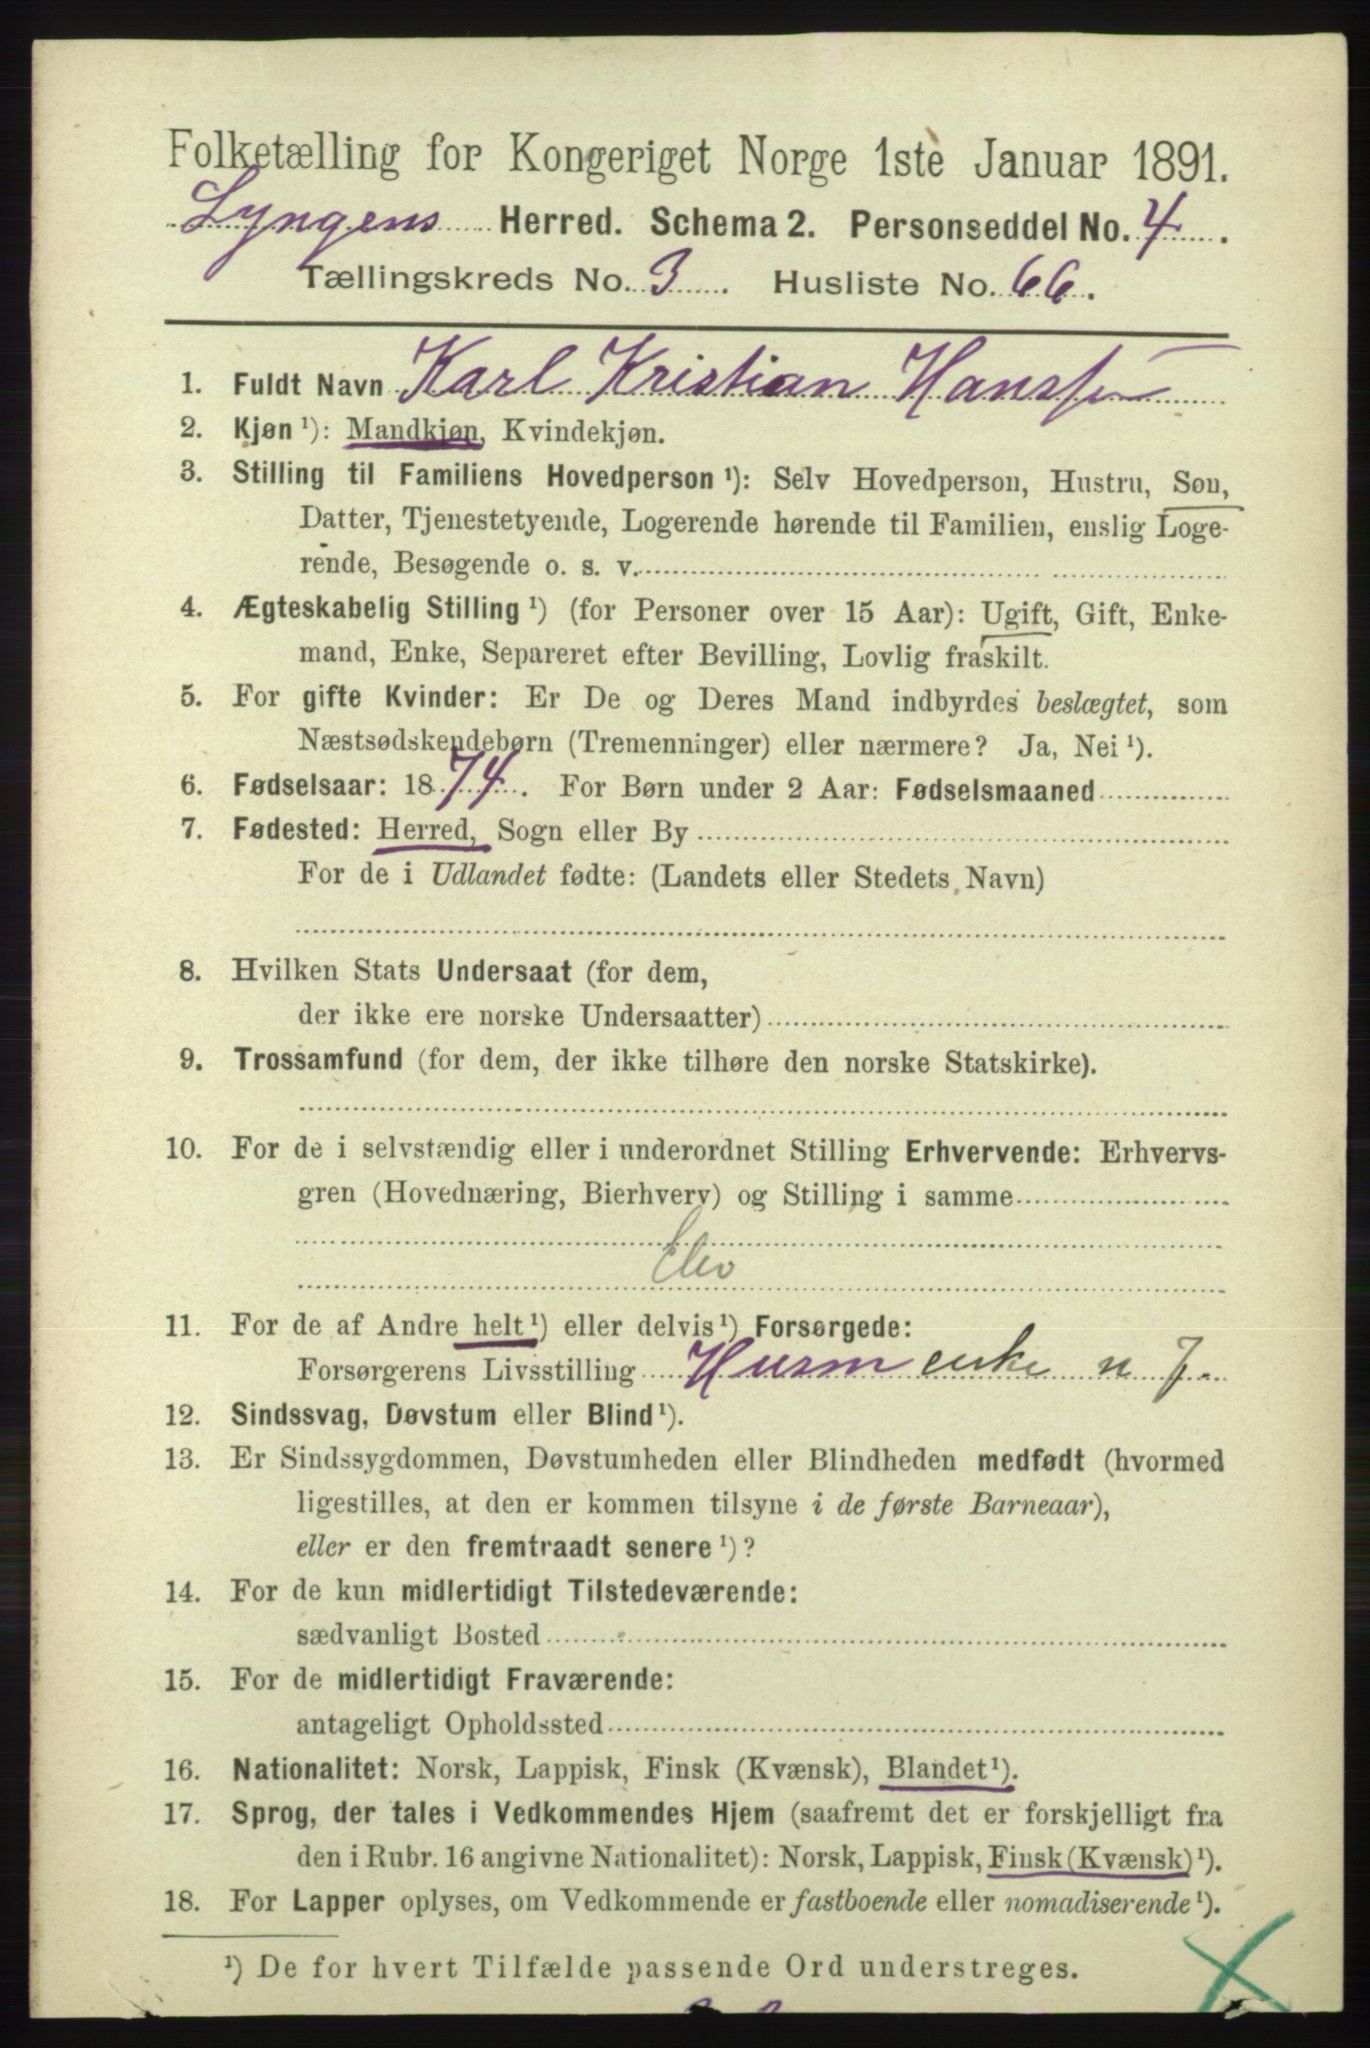 Folketælling for Kongeriget Norge 1ste Januar 1891.
Lyngens Herred. Schema 2. Personseddel No. 4.
Tællingskreds No. 3. Husliste No. 66.
1. Fuldt Navn Karl Kristian Hanssen
2. Kjøn ¹): Mandkjøn, Kvindekjøn.
3. Stilling til Familiens Hovedperson ¹): Selv Hovedperson, Hustru, Søn,
Datter, Tjenestetyende, Logerende hørende til Familien, enslig Loge-
rende, Besøgende o. s. v.
4. Ægteskabelig Stilling ¹) (for Personer over 15 Aar): Ugift, Gift, Enke-
mand, Enke, Separeret efter Bevilling, Lovlig fraskilt.
5. For gifte Kvinder: Er De og Deres Mand indbyrdes beslægtet, som
Næstsødskendebørn (Tremenninger) eller nærmere? Ja, Nei ¹).
6. Fødselsaar: 1874. For Børn under 2 Aar: Fødselsmaaned
7. Fødested: Herred, Sogn eller By
For de i Udlandet fødte: (Landets eller Stedets Navn)
8. Hvilken Stats Undersaat (for dem,
der ikke ere norske Undersaatter)
9. Trossamfund (for dem, der ikke tilhøre den norske Statskirke).
10. For de i selvstændig eller i underordnet Stilling Erhvervende: Erhvervs-
gren (Hovednæring, Bierhverv) og Stilling i samme
Elev
11. For de af Andre helt ¹) eller delvis ¹) Forsørgede:
Forsørgerens Livsstilling Husm enke u J.
12. Sindssvag, Døvstum eller Blind ¹).
13. Er Sindssygdommen, Døvstumheden eller Blindheden medfødt (hvormed
ligestilles, at den er kommen tilsyne i de første Barneaar),
eller er den fremtraadt senere ¹)?
14. For de kun midlertidigt Tilstedeværende:
sædvanligt Bosted
15. For de midlertidigt Fraværende:
antageligt Opholdssted
16. Nationalitet: Norsk, Lappisk, Finsk (Kvænsk), Blandet ¹).
17. Sprog, der tales i Vedkommendes Hjem (saafremt det er forskjelligt fra
den i Rubr. 16 angivne Nationalitet): Norsk, Lappisk, Finsk (Kvænsk) ¹).
18. For Lapper oplyses, om Vedkommende er fastboende eller nomadiserende ¹).
¹) De for hvert Tilfælde passende Ord understreges.